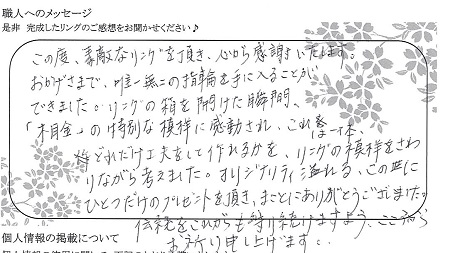 職人へのメッセージ
是非 完成したリングのご感想をお聞かせください♪
この度、素敵なリングを頂き、心から感謝いたします。
おかげさまで、唯一無二の指輪を手に入ることが
できました。リングの箱を開けた瞬間、
「木目金」の特別な模様に感動され、これは一体、
どれだけ工夫をして作れるかを、リングの模様をさわ
りながら考えました。オリジナリティ溢れる、この世に
ひとつだけのプレゼントを頂き、まことにありがとうございました。
伝統をこれからも守り続けますよう、こころから
お祈り申し上げます。
個人情報の掲載について